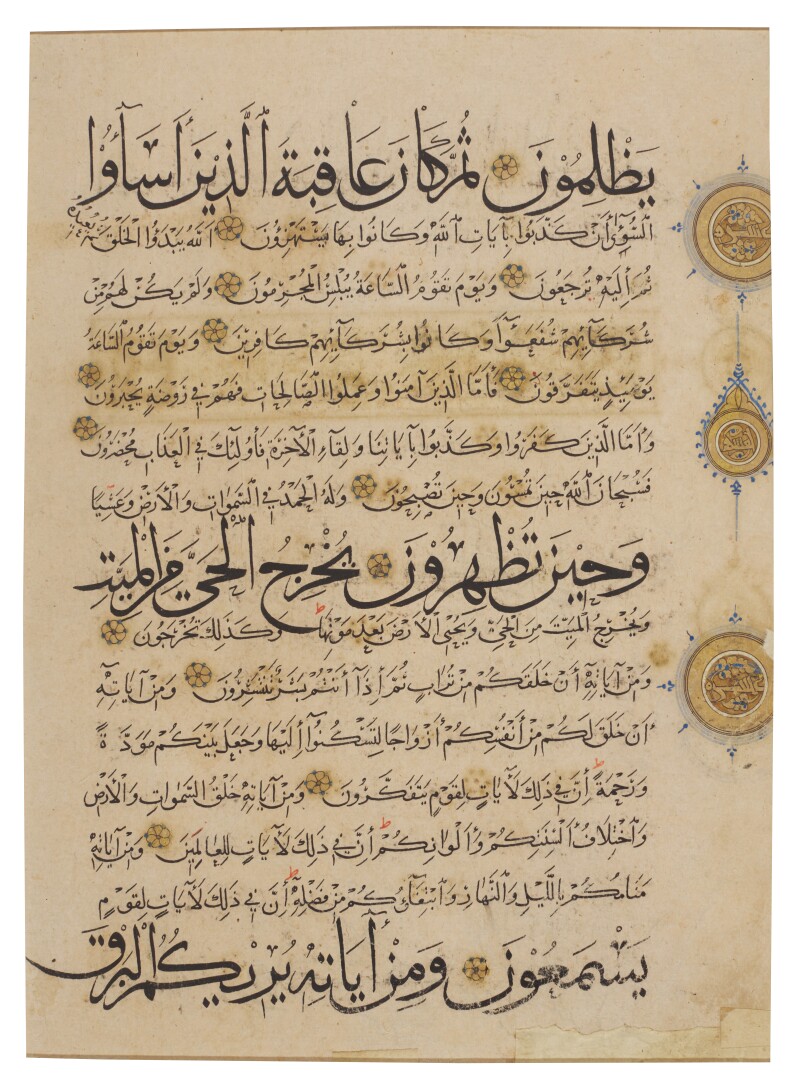 يَظْلِمُوْنَ ثُمَّ كَانَ عَاقِبَةَ ٱلَّذِيْنَ أَسَآؤُا
ٱلسُّوٓأٰى أَنْ كَذَّبُوا بِآيَاتِ ٱللّٰهِ وَكَانُوا بِهَا يَسْتَهْزِؤُنَ ٱللّٰهُ يَبْدَؤُا الْخَلْقَ ثُمَّ يُعِيدُهُ
ثُمَّ إِلَيْهِ تُرْجَعُونَ وَيَوْمَ تَقُوْمُ ٱلسَّاعَةُ يُبْلِسُ الْمُجْرِمُوْنَ وَلَمْ يَكُنْ لَهُمْ مِنْ
شُرَكَآئِهِمْ شُفَعٰٓؤُا وَكَانُوا بِشُرَكَآئِهِمْ كَافِرِيْنَ وَيَوْمَ تَقُوْمُ السَّاعَةُ
يَوْمَئِذٍ يَتَفَرَّقُوْنَ فَأَمَّا الَّذِيْنَ آمَنُوا وَعَمِلُوا ٱلصَّالِحَاتِ فَهُمْ فِي رَوْضَةٍ يُحْبَرُوْنَ
وَأَمَّا الَّذِيْنَ كَفَرُوا وَكَذَّبُوا بِآيَاتِنَا وَلِقَاءِ الْآخِرَةِ فَأُولٰئِكَ فِي الْعَذَابِ مُحْضَرُوْنَ
فَسُبْحَانَ ٱللّٰهِ حِيْنَ تُمْسُوْنَ وَحِيْنَ تُصْبِحُوْنَ وَلَهُ الْحَمْدُ فِي السَّمٰوَاتِ وَالْأَرْضِ وَعَشِيًّا
وَحِيْنَ تُظْهِرُوْنَ يُخْرِجُ الْحَيَّ مِنَ الْمَيِّتِ
وَيُخْرِجُ الْمَيِّتَ مِنَ الْحَيِّ وَيُحْيِي الْأَرْضَ بَعْدَ مَوْتِهَا ط وَكَذٰلِكَ تُخْرَجُونَ
وَمِنْ آيَاتِهِٓ أَنْ خَلَقَكُمْ مِنْ تُرَابٍ ثُمَّ إِذَآ أَنْتُمْ بَشَرٌ تَنْتَشِرُوْنَ وَمِنْ آيَاتِهِٓ
أَنْ خَلَقَ لَكُمْ مِنْ أَنْفُسِكُمْ أَزْوَاجًا لِتَسْكُنُوٓا إِلَيْهَا وَجَعَلَ بَيْنَكُمْ مَوَدَّةً
وَرَحْمَةً ط إِنَّ فِي ذٰلِكَ لَآيَاتٍ لِقَوْمٍ يَتَفَكَّرُوْنَ وَمِنْ آيَاتِهِ خَلْقُ السَّمٰوَاتِ وَالْأَرْضِ
وَٱخْتِلَافُ أَلْسِنَتِكُمْ وَأَلْوَانِكُمْ ط إِنَّ فِي ذٰلِكَ لَآيَاتٍ لِلْعَالَمِيْنَ وَمِنْ آيَاتِهِ
مَنَامُكُمْ بِاللَّيْلِ وَالنَّهَارِ وَٱبْتِغَآؤُكُمْ مِنْ فَضْلِهِ ط إِنَّ فِي ذٰلِكَ لَآيَاتٍ لِقَوْمٍ
يَسْمَعُوْنَ وَمِنْ آيَاتِهِ يُرِيْكُمُ الْبَرْقَ